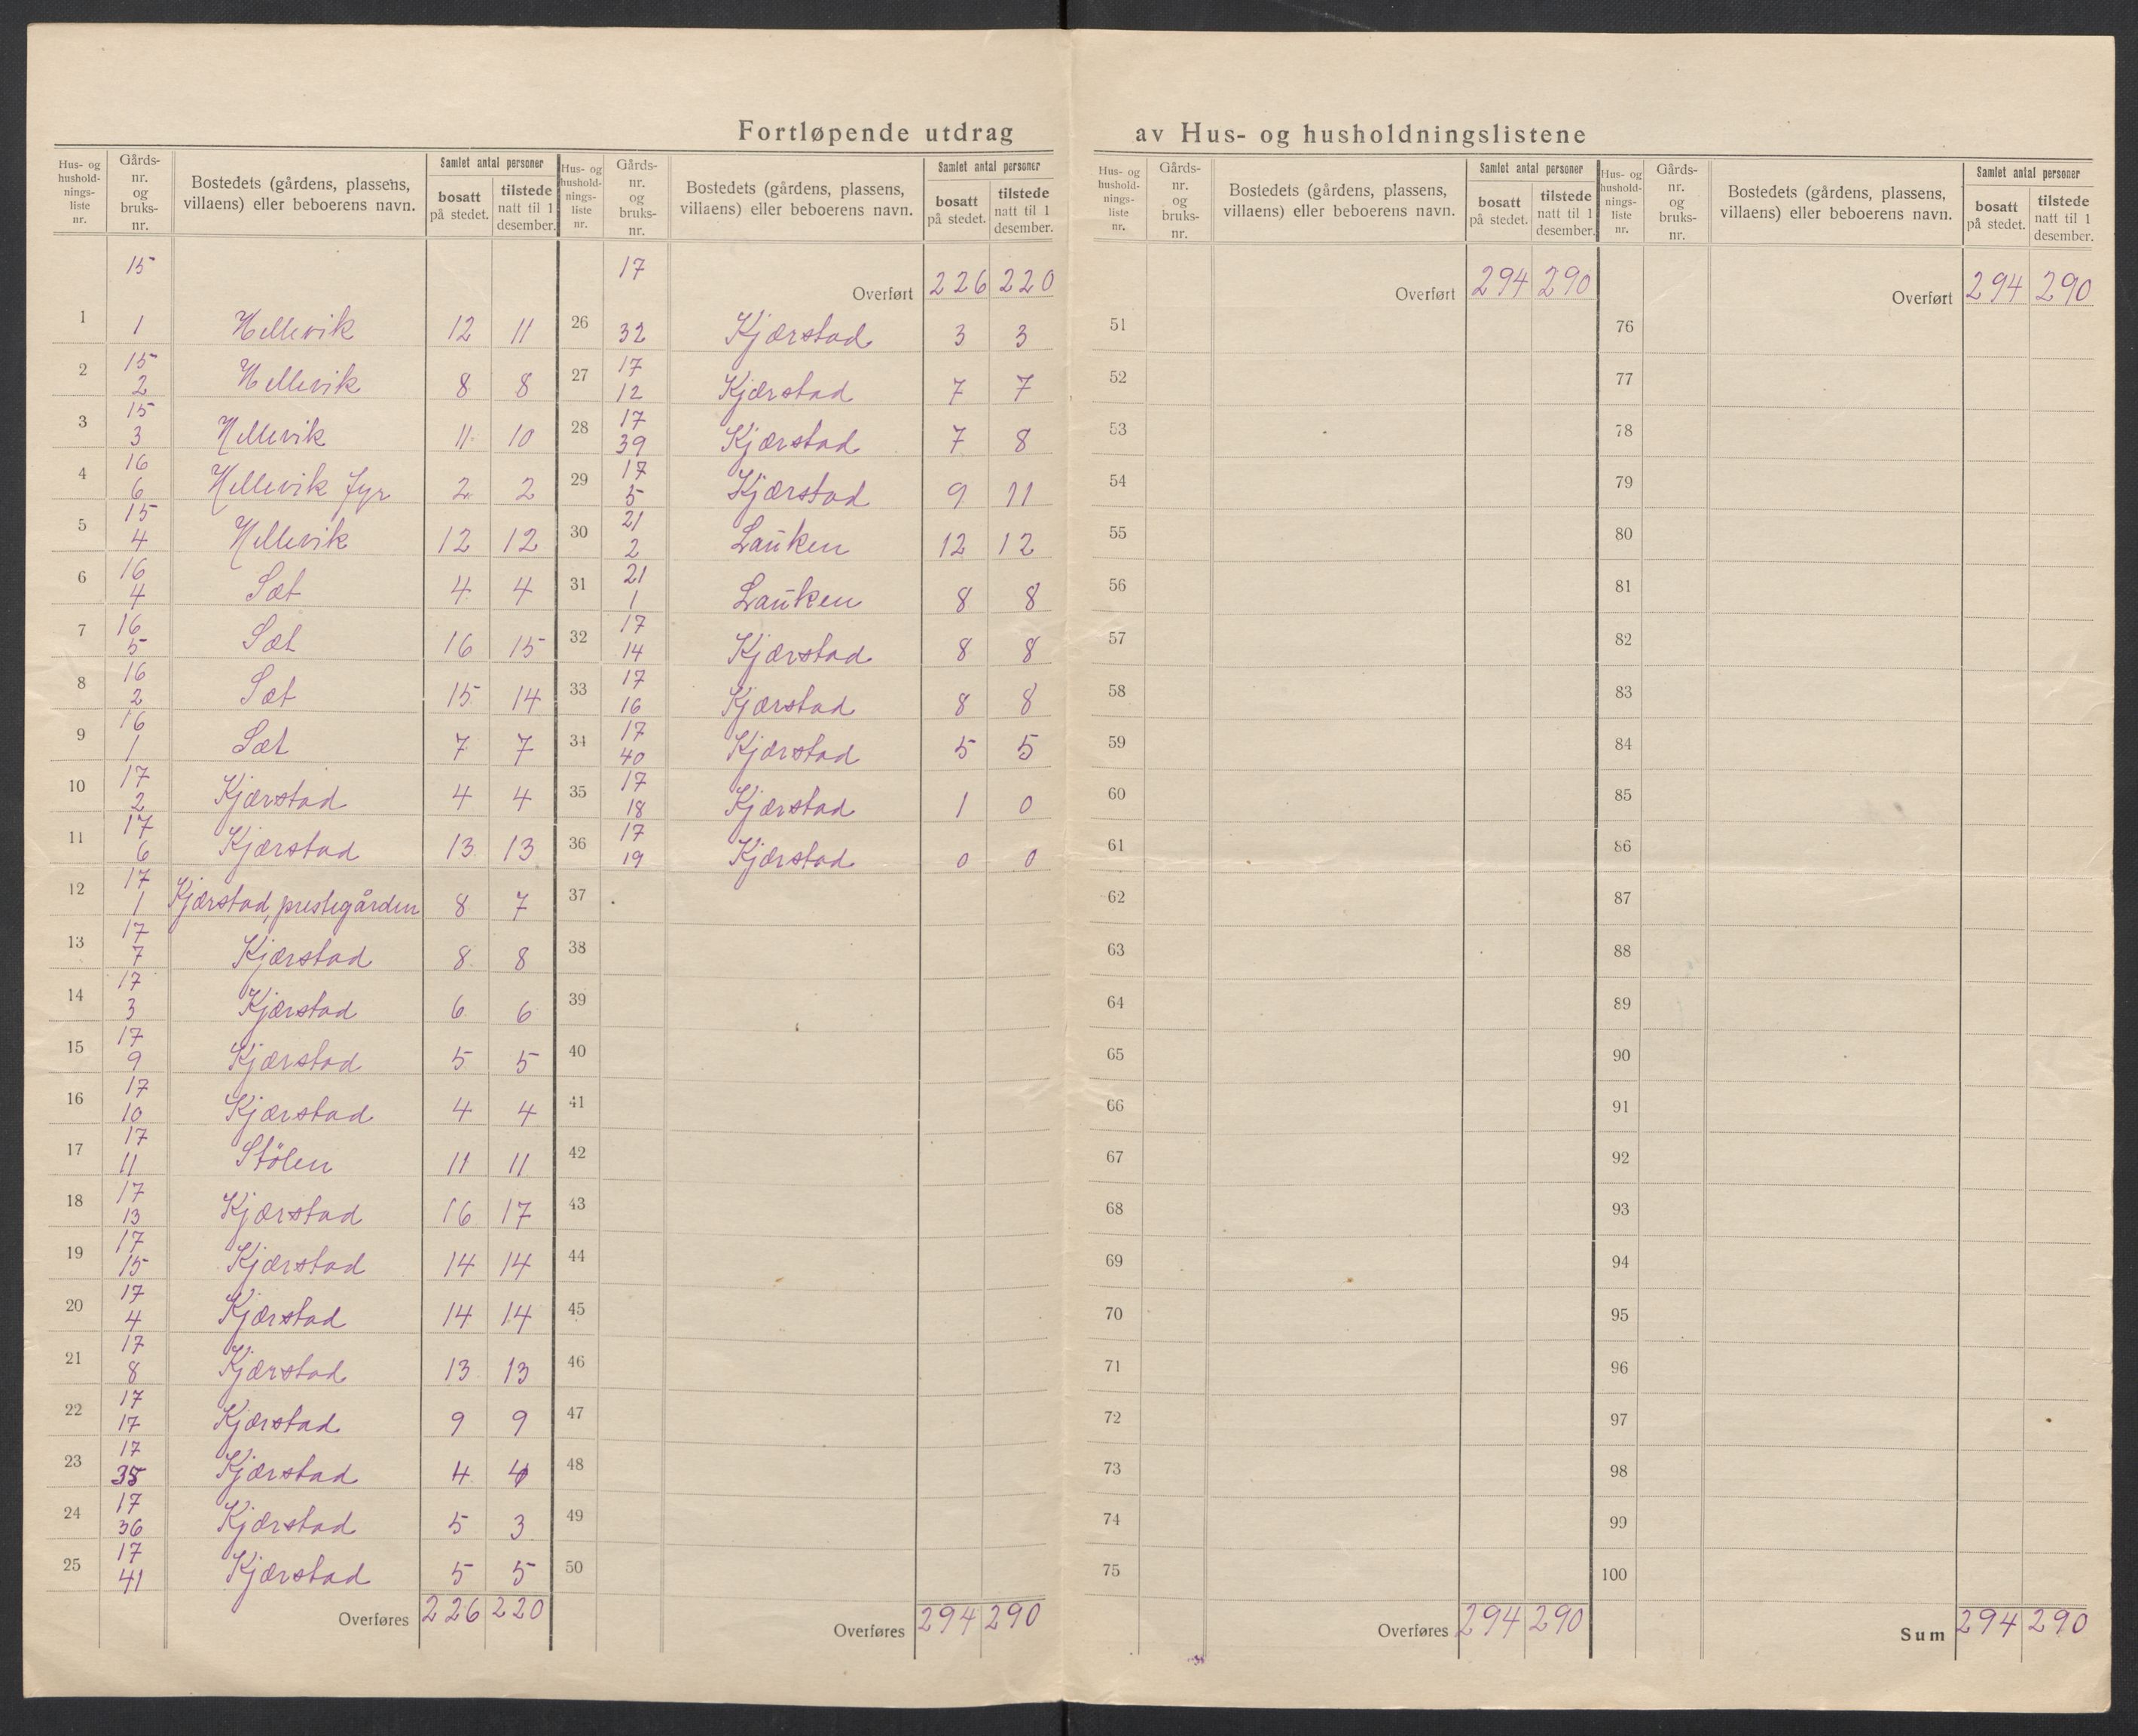 Fortløpende utdrag av Hus- og husholdningslistene
Hus- og husholdnings-liste nr. | Gårds-nr. og bruks-nr. | Bostedets (gårdens, plassens, villaens) eller beboerens navn. | Samlet antal personer | bosatt på stedet. | tilstede natt til 1 desember.
1 | 15 1 | Hellevik | 12 | 11
2 | 15 2 | Hellevik | 8 | 8
3 | 15 3 | Hellevik | 11 | 10
4 | 16 6 | Hellevik fyr | 2 | 2
5 | 15 4 | Hellevik | 12 | 12
6 | 16 4 | Sæt | 4 | 4
7 | 16 5 | Sæt | 16 | 15
8 | 16 2 | Sæt | 15 | 14
9 | 16 1 | Sæt | 7 | 7
10 | 17 2 | Kjærstad | 4 | 4
11 | 17 6 | Kjærstad | 13 | 13
12 | 17 1 | Kjærstad, prestegården | 8 | 7
13 | 17 7 | Kjærstad | 8 | 8
14 | 17 3 | Kjærstad | 6 | 6
15 | 17 9 | Kjærstad | 5 | 5
16 | 17 10 | Kjærstad | 4 | 4
17 | 17 11 | Stölen | 11 | 11
18 | 17 13 | Kjærstad | 16 | 17
19 | 17 15 | Kjærstad | 14 | 14
20 | 17 4 | Kjærstad | 14 | 14
21 | 17 8 | Kjærstad | 13 | 13
22 | 17 17 | Kjærstad | 9 | 9
23 | 17 35 | Kjærstad | 4 | 4
24 | 17 36 | Kjærstad | 5 | 3
25 | 17 41 | Kjærstad | 5 | 5
Overføres | 226 | 220
Hus- og husholdnings-liste nr. | Gårds-nr. og bruks-nr. | Bostedets (gårdens, plassens, villaens) eller beboerens navn. | Samlet antal personer | bosatt på stedet. | tilstede natt til 1 desember.
Overført | 226 | 220
26 | 17 32 | Kjærstad | 3 | 3
27 | 17 12 | Kjærstad | 7 | 7
28 | 17 39 | Kjærstad | 7 | 8
29 | 17 5 | Kjærstad | 9 | 11
30 | 21 2 | Lauken | 12 | 12
31 | 21 1 | Lauken | 8 | 8
32 | 17 14 | Kjærstad | 8 | 8
33 | 17 16 | Kjærstad | 8 | 8
34 | 17 40 | Kjærstad | 5 | 5
35 | 17 18 | Kjærstad | 1 | 0
36 | 17 19 | Kjærstad | 0 | 0
37
38
39
40
41
42
43
44
45
46
47
48
49
50
Overføres | 294 | 290
Hus- og husholdnings-liste nr. | Gårds-nr. og bruks-nr. | Bostedets (gårdens, plassens, villaens) eller beboerens navn. | Samlet antal personer | bosatt på stedet. | tilstede natt til 1 desember.
Overført | 294 | 290
51
52
53
54
55
56
57
58
59
60
61
62
63
64
65
66
67
68
69
70
71
72
73
74
75
Overføres | 294 | 290
Hus- og husholdnings-liste nr. | Gårds-nr. og bruks-nr. | Bostedets (gårdens, plassens, villaens) eller beboerens navn. | Samlet antal personer | bosatt på stedet. | tilstede natt til 1 desember.
Overført | 294 | 290
76
77
78
79
80
81
82
83
84
85
86
87
88
89
90
91
92
93
94
95
96
97
98
99
100
Sum | 294 | 290